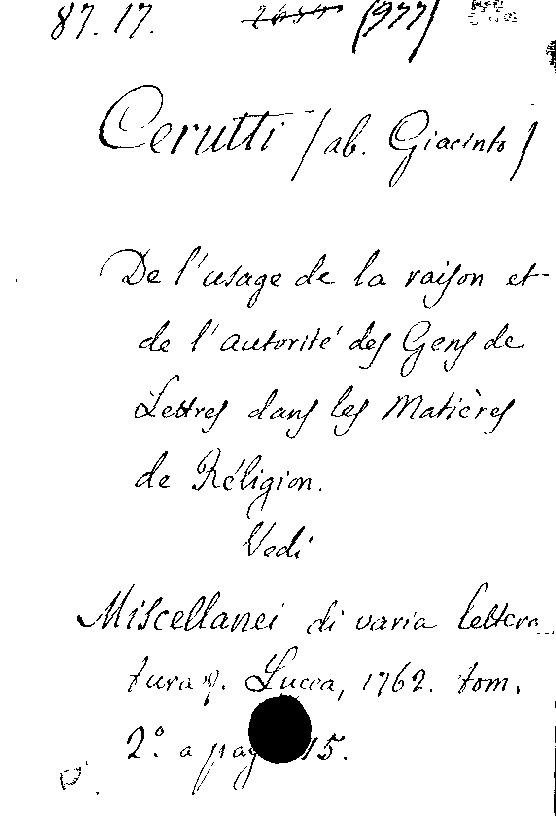 87. 17. (977)
Cerutti (ab. Giacinto)
De l'usage de la raison et
de l'autorité des Gens de
Lettres dans les Matières
de Réligion.
Vedi
Miscellanei di varia lettera
tura &. Lucca, 1762. tom.
2.º a pag 15.